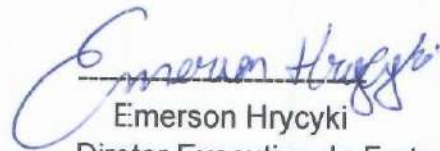 Emerson Hrycyki
Emerson Hrycyki